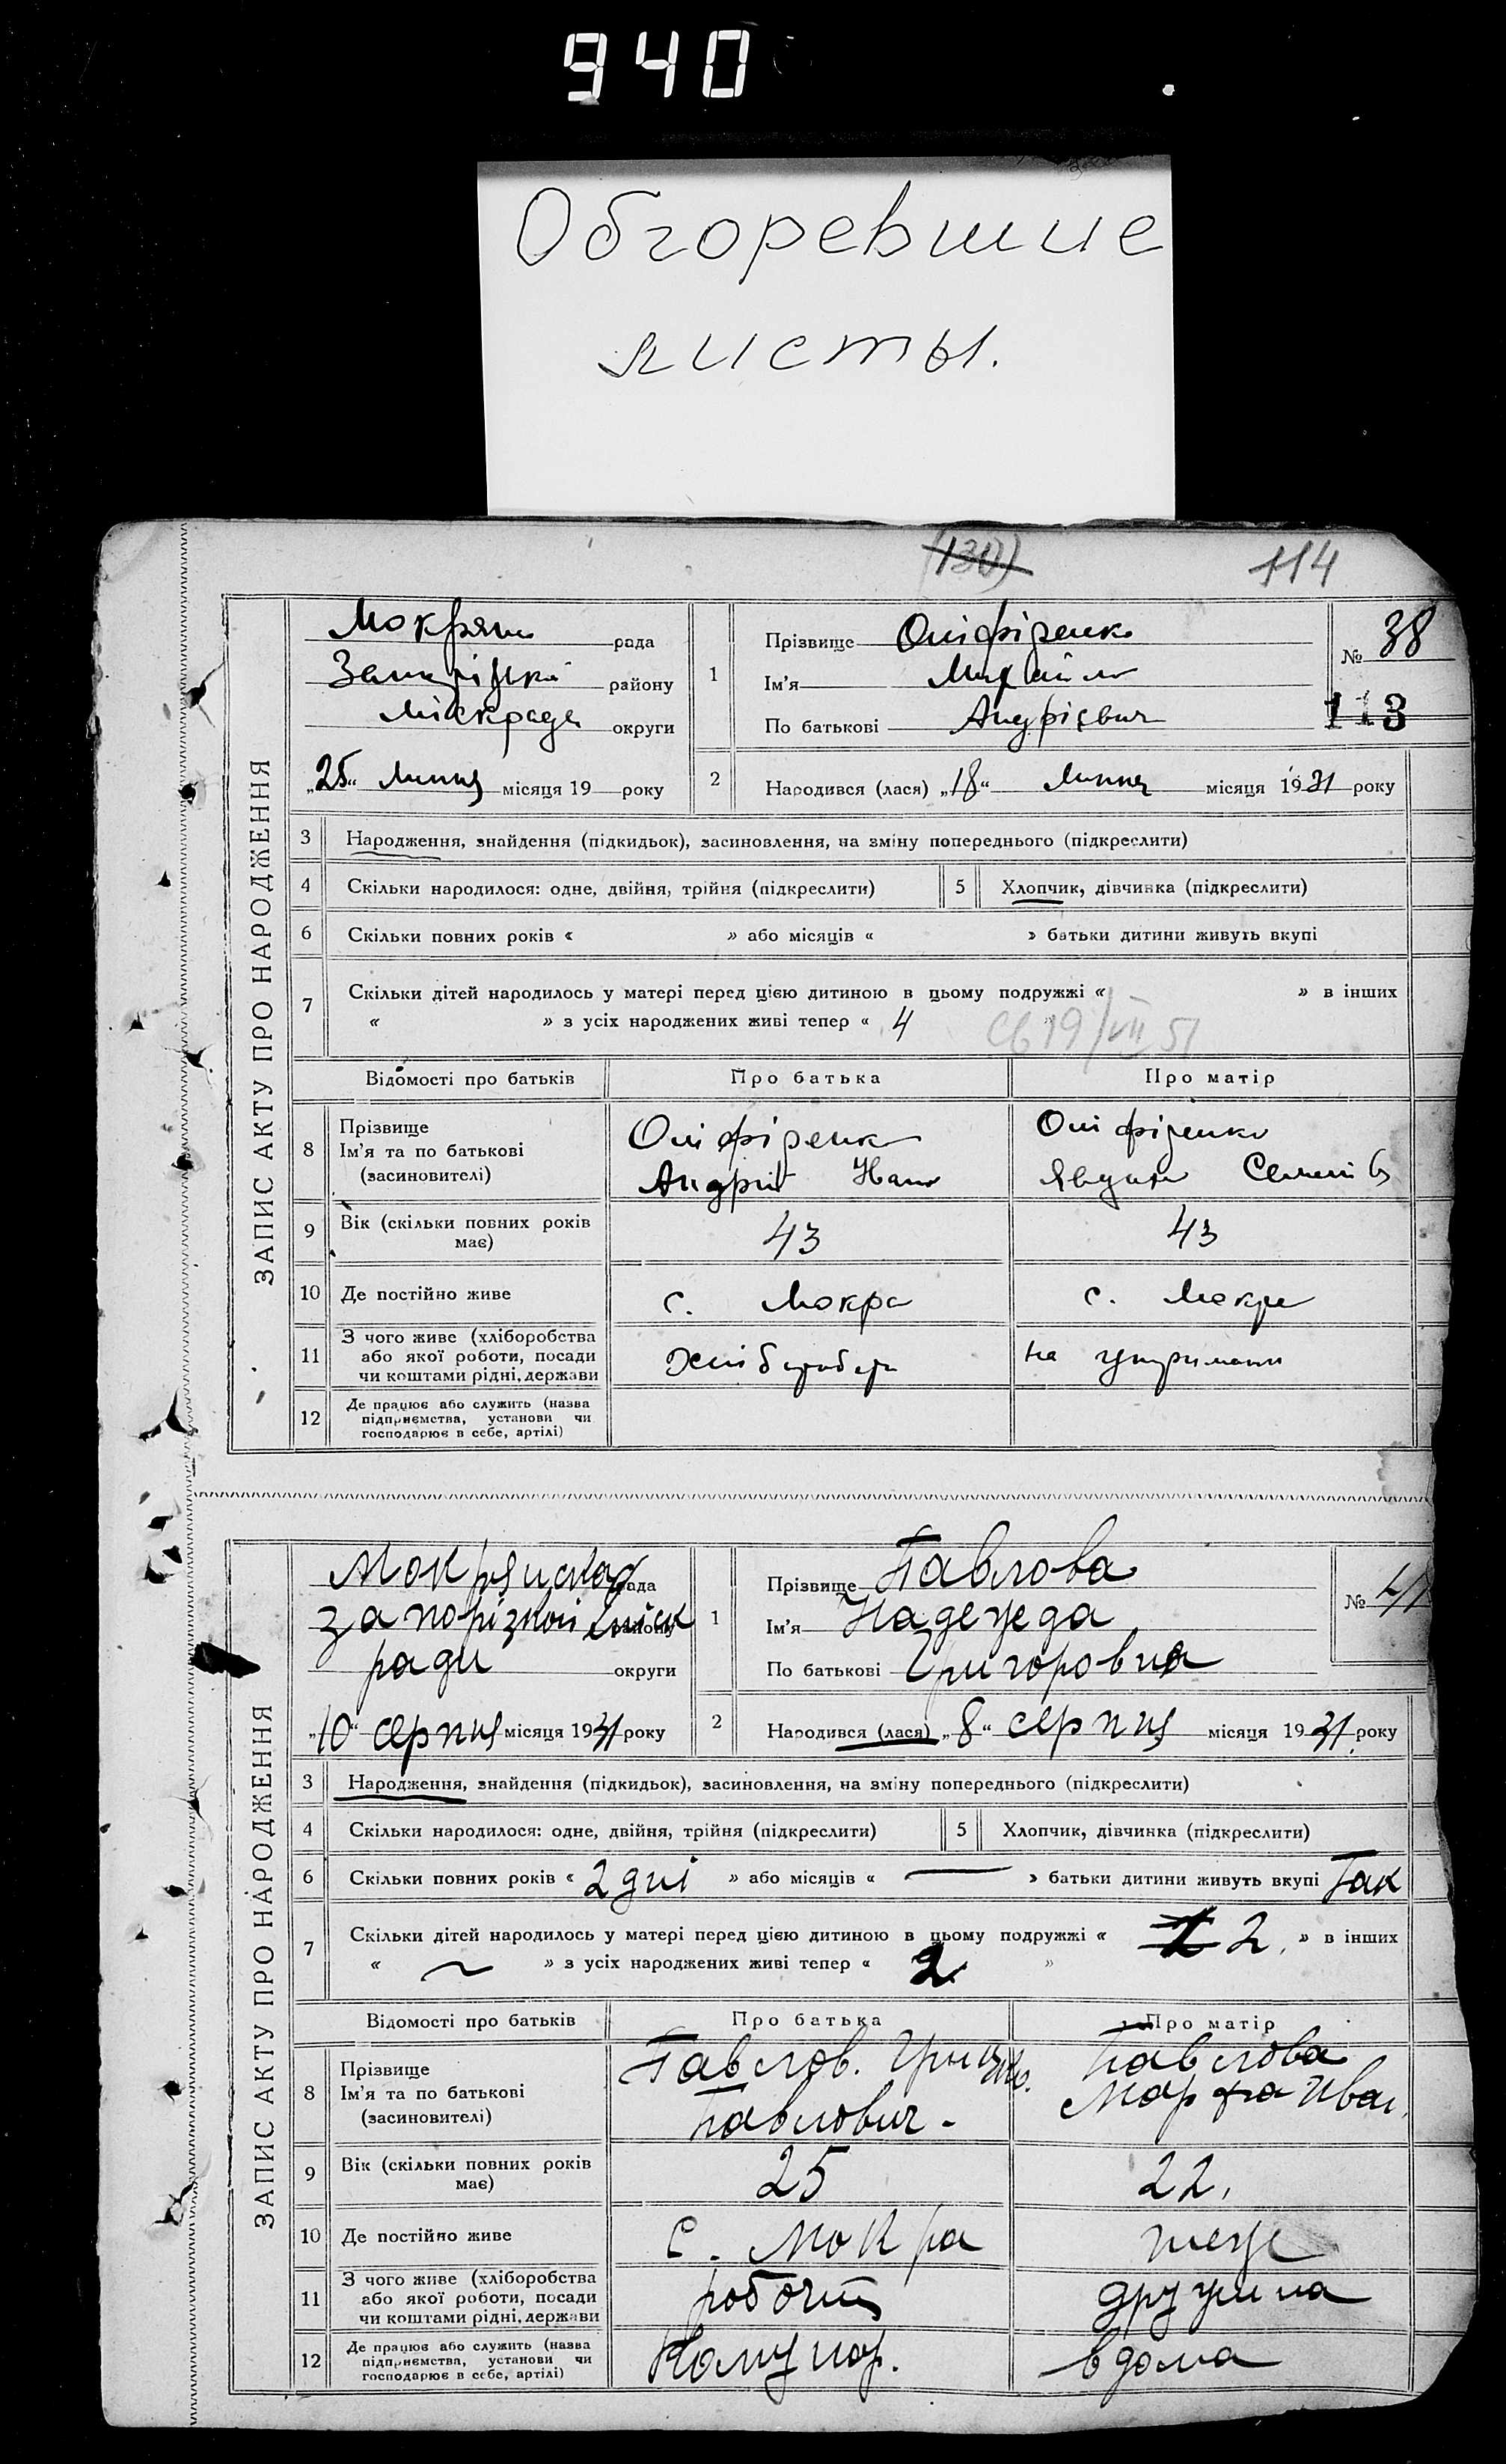 940
Обгоревшие
листы.
(130) 114
ЗАПИС АКТУ ПРО НАРОДЖЕННЯ
рада
району
Міскрада округи
1 Прізвище Оліфіренко
Ім'я Михайло
По батькові Андрієвич
№ 38
113
„25“ Липня місяця 19 року
2 Народився (лася) „18“ Липня місяця 1931 року
3 Народження, знайдення (підкидьок), засиновлення, на зміну попереднього (підкреслити)
4 Скільки народилося: одне, двійня, трійня (підкреслити) 5 Хлопчик, дівчинка (підкреслити)
6 Скільки повних років « » або місяців « » батьки дитини живуть вкупі
7 Скільки дітей народилось у матері перед цією дитиною в цьому подружжі « » в інших
« » з усіх народжених живі тепер « 4
19/VII 51
Відомості про батьків Про батька Про матір
8 Прізвище
Ім'я та по батькові
(засиновителі)
Оліфіренко
Андрій
Оліфіренко
9 Вік (скільки повних років
має)
43 43
10 Де постійно живе с. Мокра с. Мокре
11 З чого живе (хліборобства
або якої роботи, посади
чи коштами рідні, держави
Хлібороб на утриманні
12 Де працює або служить (назва
підприємства, установи чи
господарює в себе, артілі)
ЗАПИС АКТУ ПРО НАРОДЖЕННЯ
Мокрянська рада
запорізкой міск району
ради округи
1 Прізвище Павлова
Ім'я Надежда
По батькові Григоровна
№ 41
„10“ серпня місяця 1931 року
2 Народився (лася) „8“ серпня місяця 1931 року
3 Народження, знайдення (підкидьок), засиновлення, на зміну попереднього (підкреслити)
4 Скільки народилося: одне, двійня, трійня (підкреслити) 5 Хлопчик, дівчинка (підкреслити)
6 Скільки повних років « 2 дні » або місяців « — » батьки дитини живуть вкупі Так
7 Скільки дітей народилось у матері перед цією дитиною в цьому подружжі « 2 » в інших
« ~ » з усіх народжених живі тепер « 2 »
Відомості про батьків Про батька Про матір
8 Прізвище
Ім'я та по батькові
(засиновителі)
Павлов. Грицько.
Павлович.
Павлова
Марфа Иван.
9 Вік (скільки повних років
має)
25 22.
10 Де постійно живе с. Мокра теже
11 З чого живе (хліборобства
або якої роботи, посади
чи коштами рідні, держави
робочий дружина
12 Де працює або служить (назва
підприємства, установи чи
господарює в себе, артілі)
Комунар. вдома